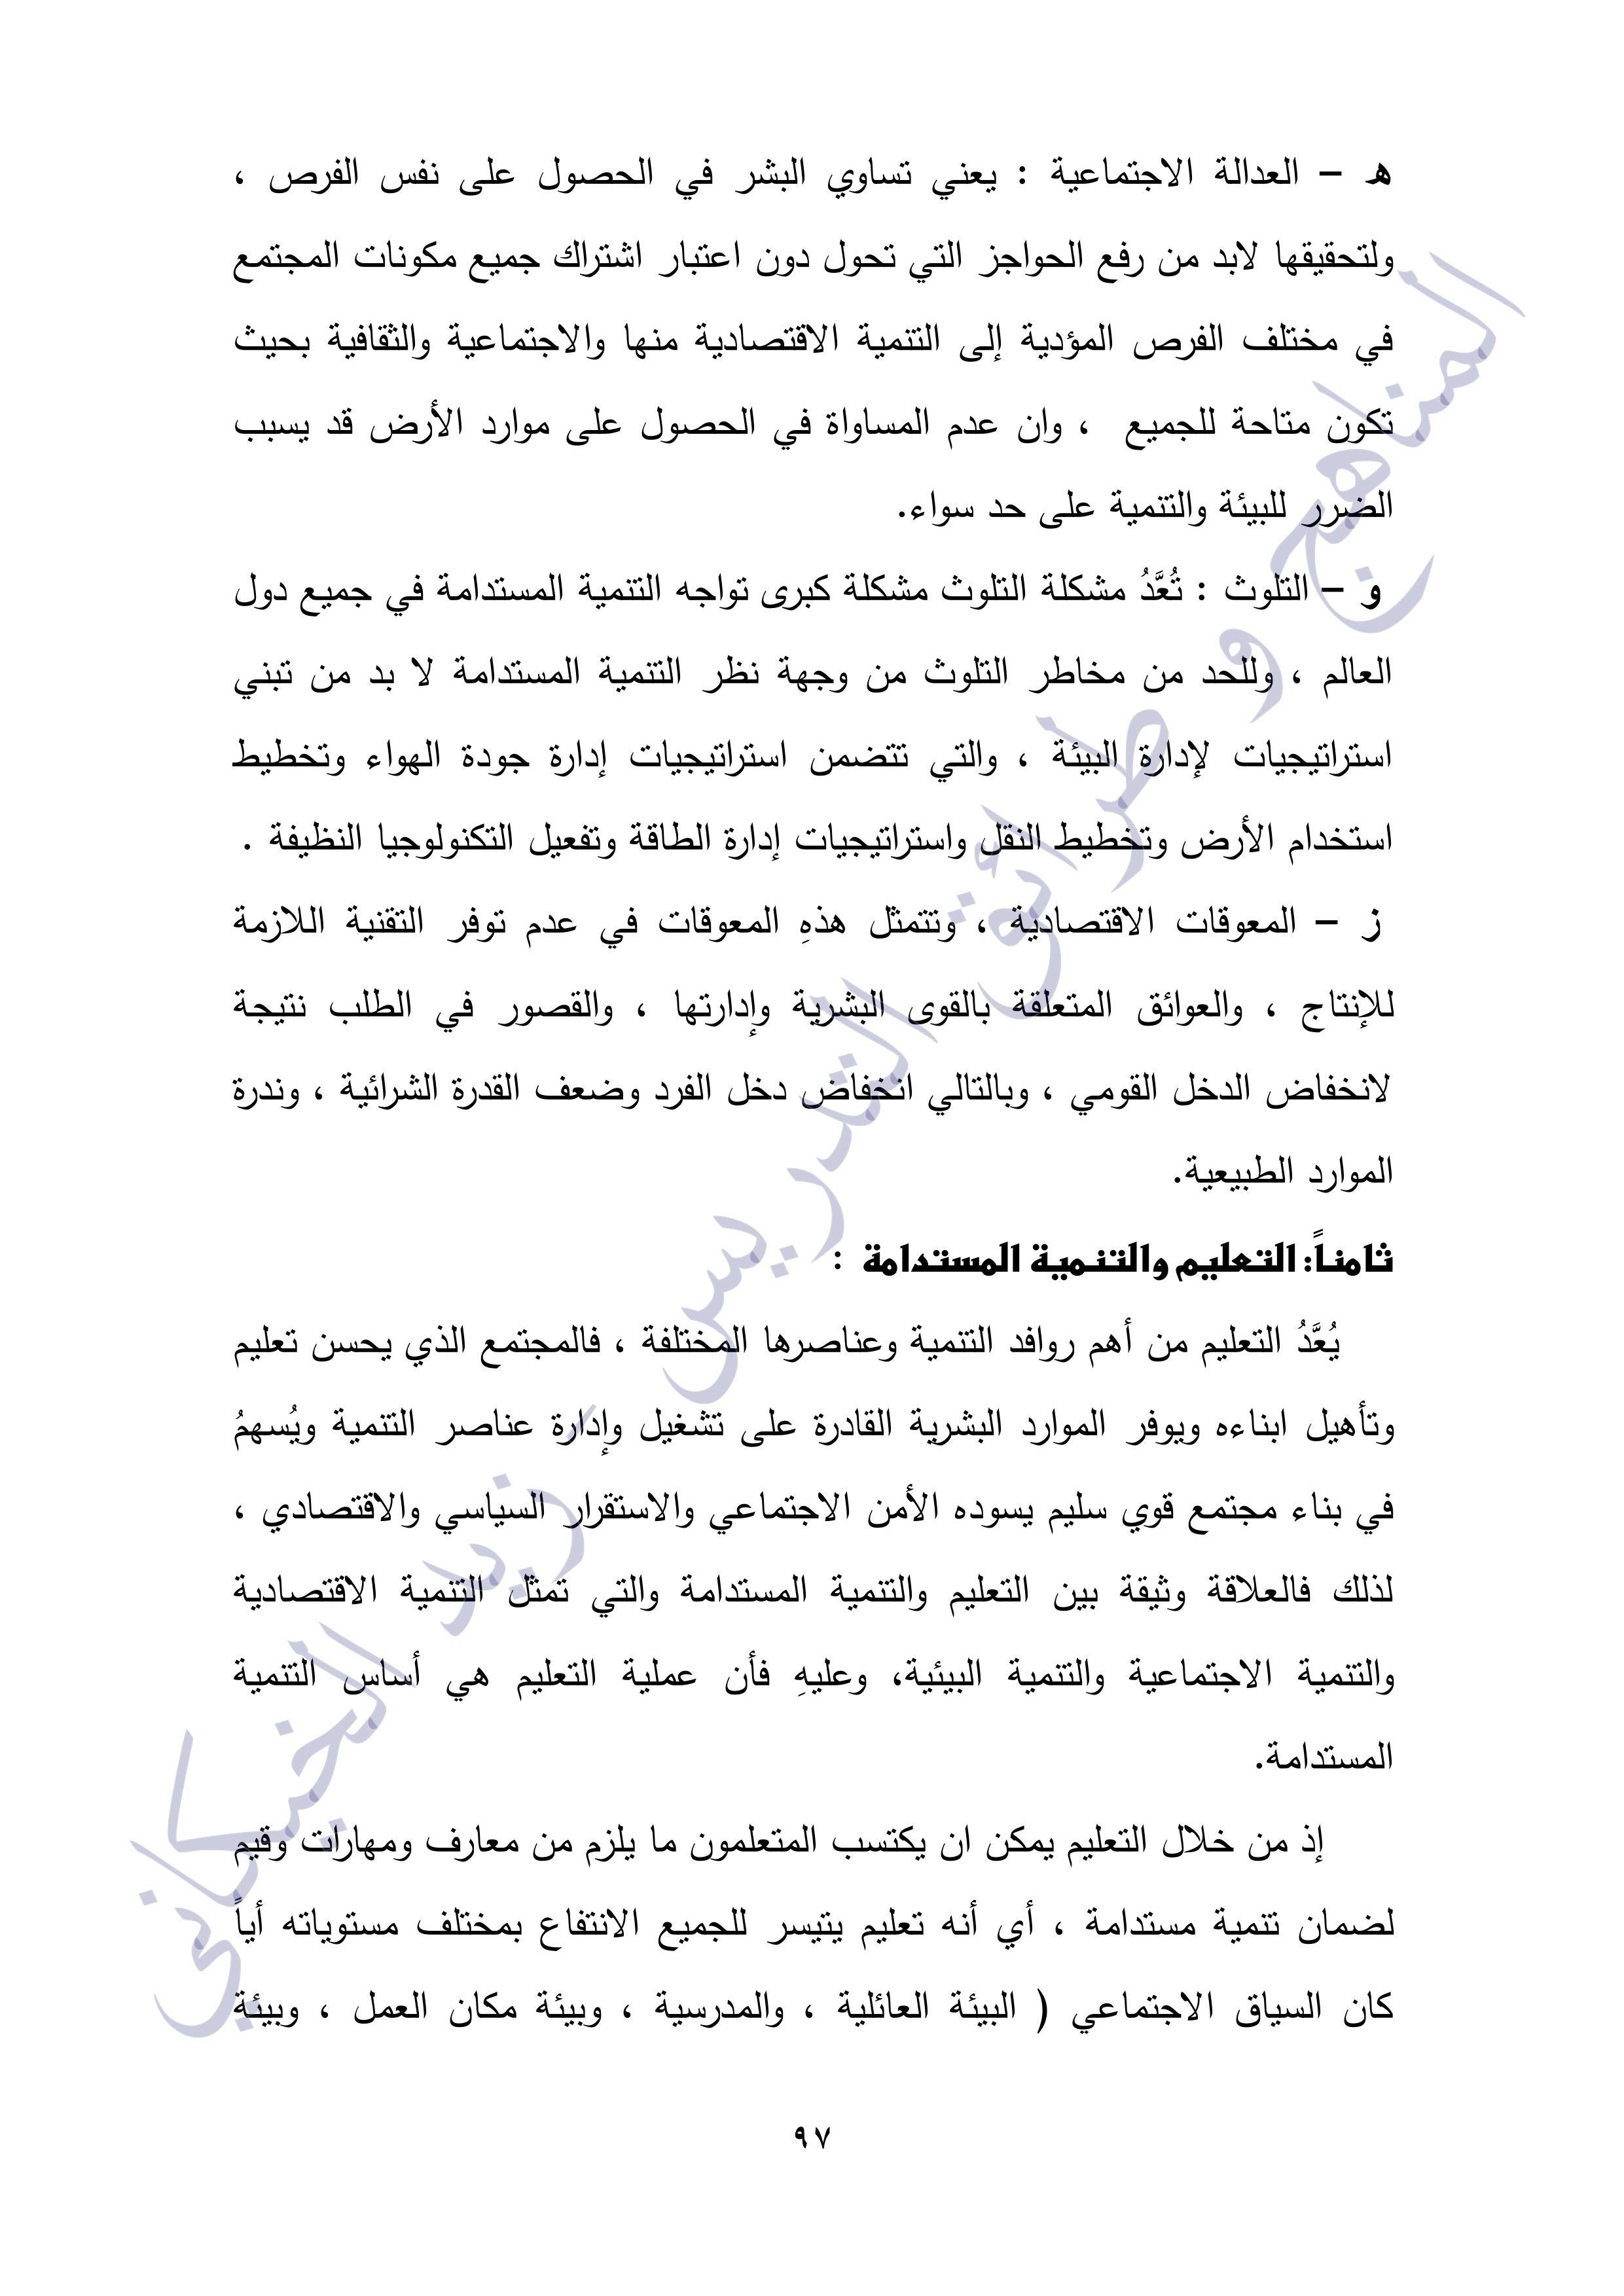 هـ – العدالة الاجتماعية : يعني تساوي البشر في الحصول على نفس الفرص ،
ولتحقيقها لابد من رفع الحواجز التي تحول دون اعتبار اشتراك جميع مكونات المجتمع
في مختلف الفرص المؤدية إلى التنمية الاقتصادية منها والاجتماعية والثقافية بحيث
تكون متاحة للجميع ، وان عدم المساواة في الحصول على موارد الأرض قد يسبب
الضرر للبيئة والتنمية على حد سواء.
و – التلوث : تُعَّدُ مشكلة التلوث مشكلة كبرى تواجه التنمية المستدامة في جميع دول
العالم ، وللحد من مخاطر التلوث من وجهة نظر التنمية المستدامة لا بد من تبني
استراتيجيات لإدارة البيئة ، والتي تتضمن استراتيجيات إدارة جودة الهواء وتخطيط
استخدام الأرض وتخطيط النقل واستراتيجيات إدارة الطاقة وتفعيل التكنولوجيا النظيفة .
ز – المعوقات الاقتصادية ، وتتمثل هذهِ المعوقات في عدم توفر التقنية اللازمة
للإنتاج ، والعوائق المتعلقة بالقوى البشرية وإدارتها ، والقصور في الطلب نتيجة
لانخفاض الدخل القومي ، وبالتالي انخفاض دخل الفرد وضعف القدرة الشرائية ، وندرة
الموارد الطبيعية.
ثامناً: التعليم والتنمية المستدامة :
يُعَّدُ التعليم من أهم روافد التنمية وعناصرها المختلفة ، فالمجتمع الذي يحسن تعليم
وتأهيل ابناءه ويوفر الموارد البشرية القادرة على تشغيل وإدارة عناصر التنمية ويُسهمُ
في بناء مجتمع قوي سليم يسوده الأمن الاجتماعي والاستقرار السياسي والاقتصادي ،
لذلك فالعلاقة وثيقة بين التعليم والتنمية المستدامة والتي تمثل التنمية الاقتصادية
والتنمية الاجتماعية والتنمية البيئية، وعليهِ فأن عملية التعليم هي أساس التنمية
المستدامة.
إذ من خلال التعليم يمكن ان يكتسب المتعلمون ما يلزم من معارف ومهارات وقيم
لضمان تنمية مستدامة ، أي أنه تعليم يتيسر للجميع الانتفاع بمختلف مستوياته أياً
كان السياق الاجتماعي ( البيئة العائلية ، والمدرسية ، وبيئة مكان العمل ، وبيئة
٩٧
المناهج و طرائق التدريس - زيد الخيكاني